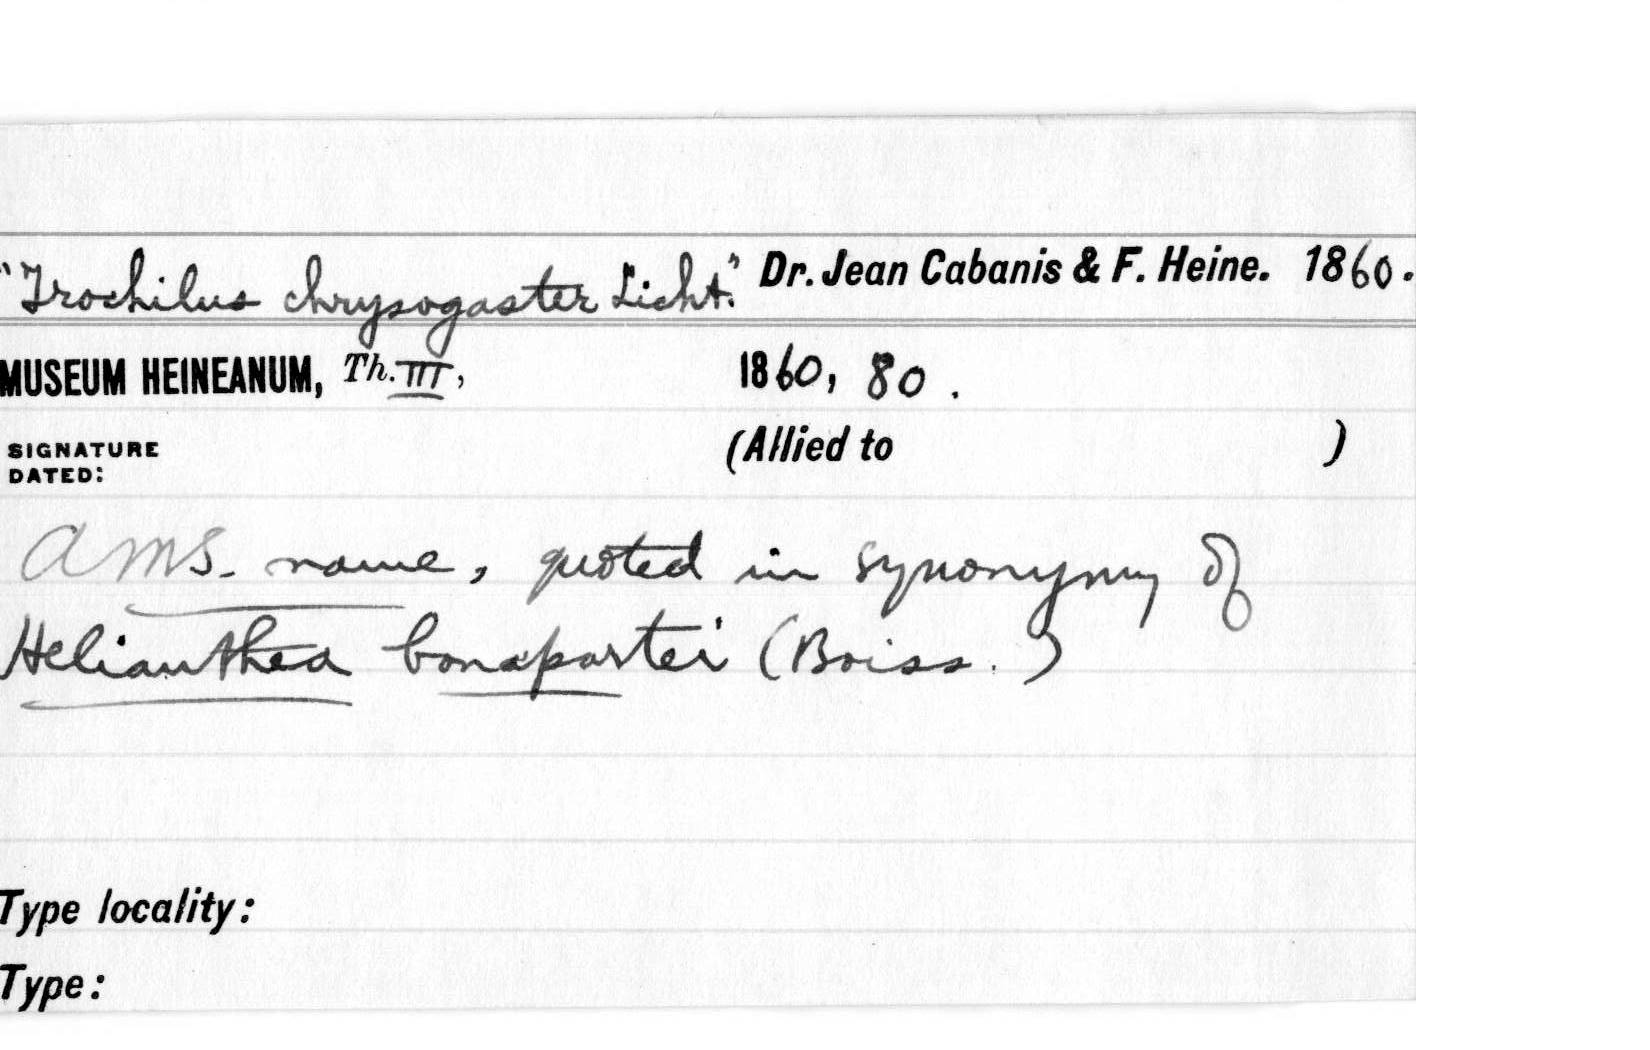 "Trochilus chrysogaster Licht." Dr. Jean Cabanis & F. Heine. 1860.
MUSEUM HEINEANUM, Th. III, 1860, 80.
SIGNATURE DATED: (Allied to )
A MS. name, quoted in synonymy of
Helianthea bonapartei (Boiss.)
Type locality:
Type: